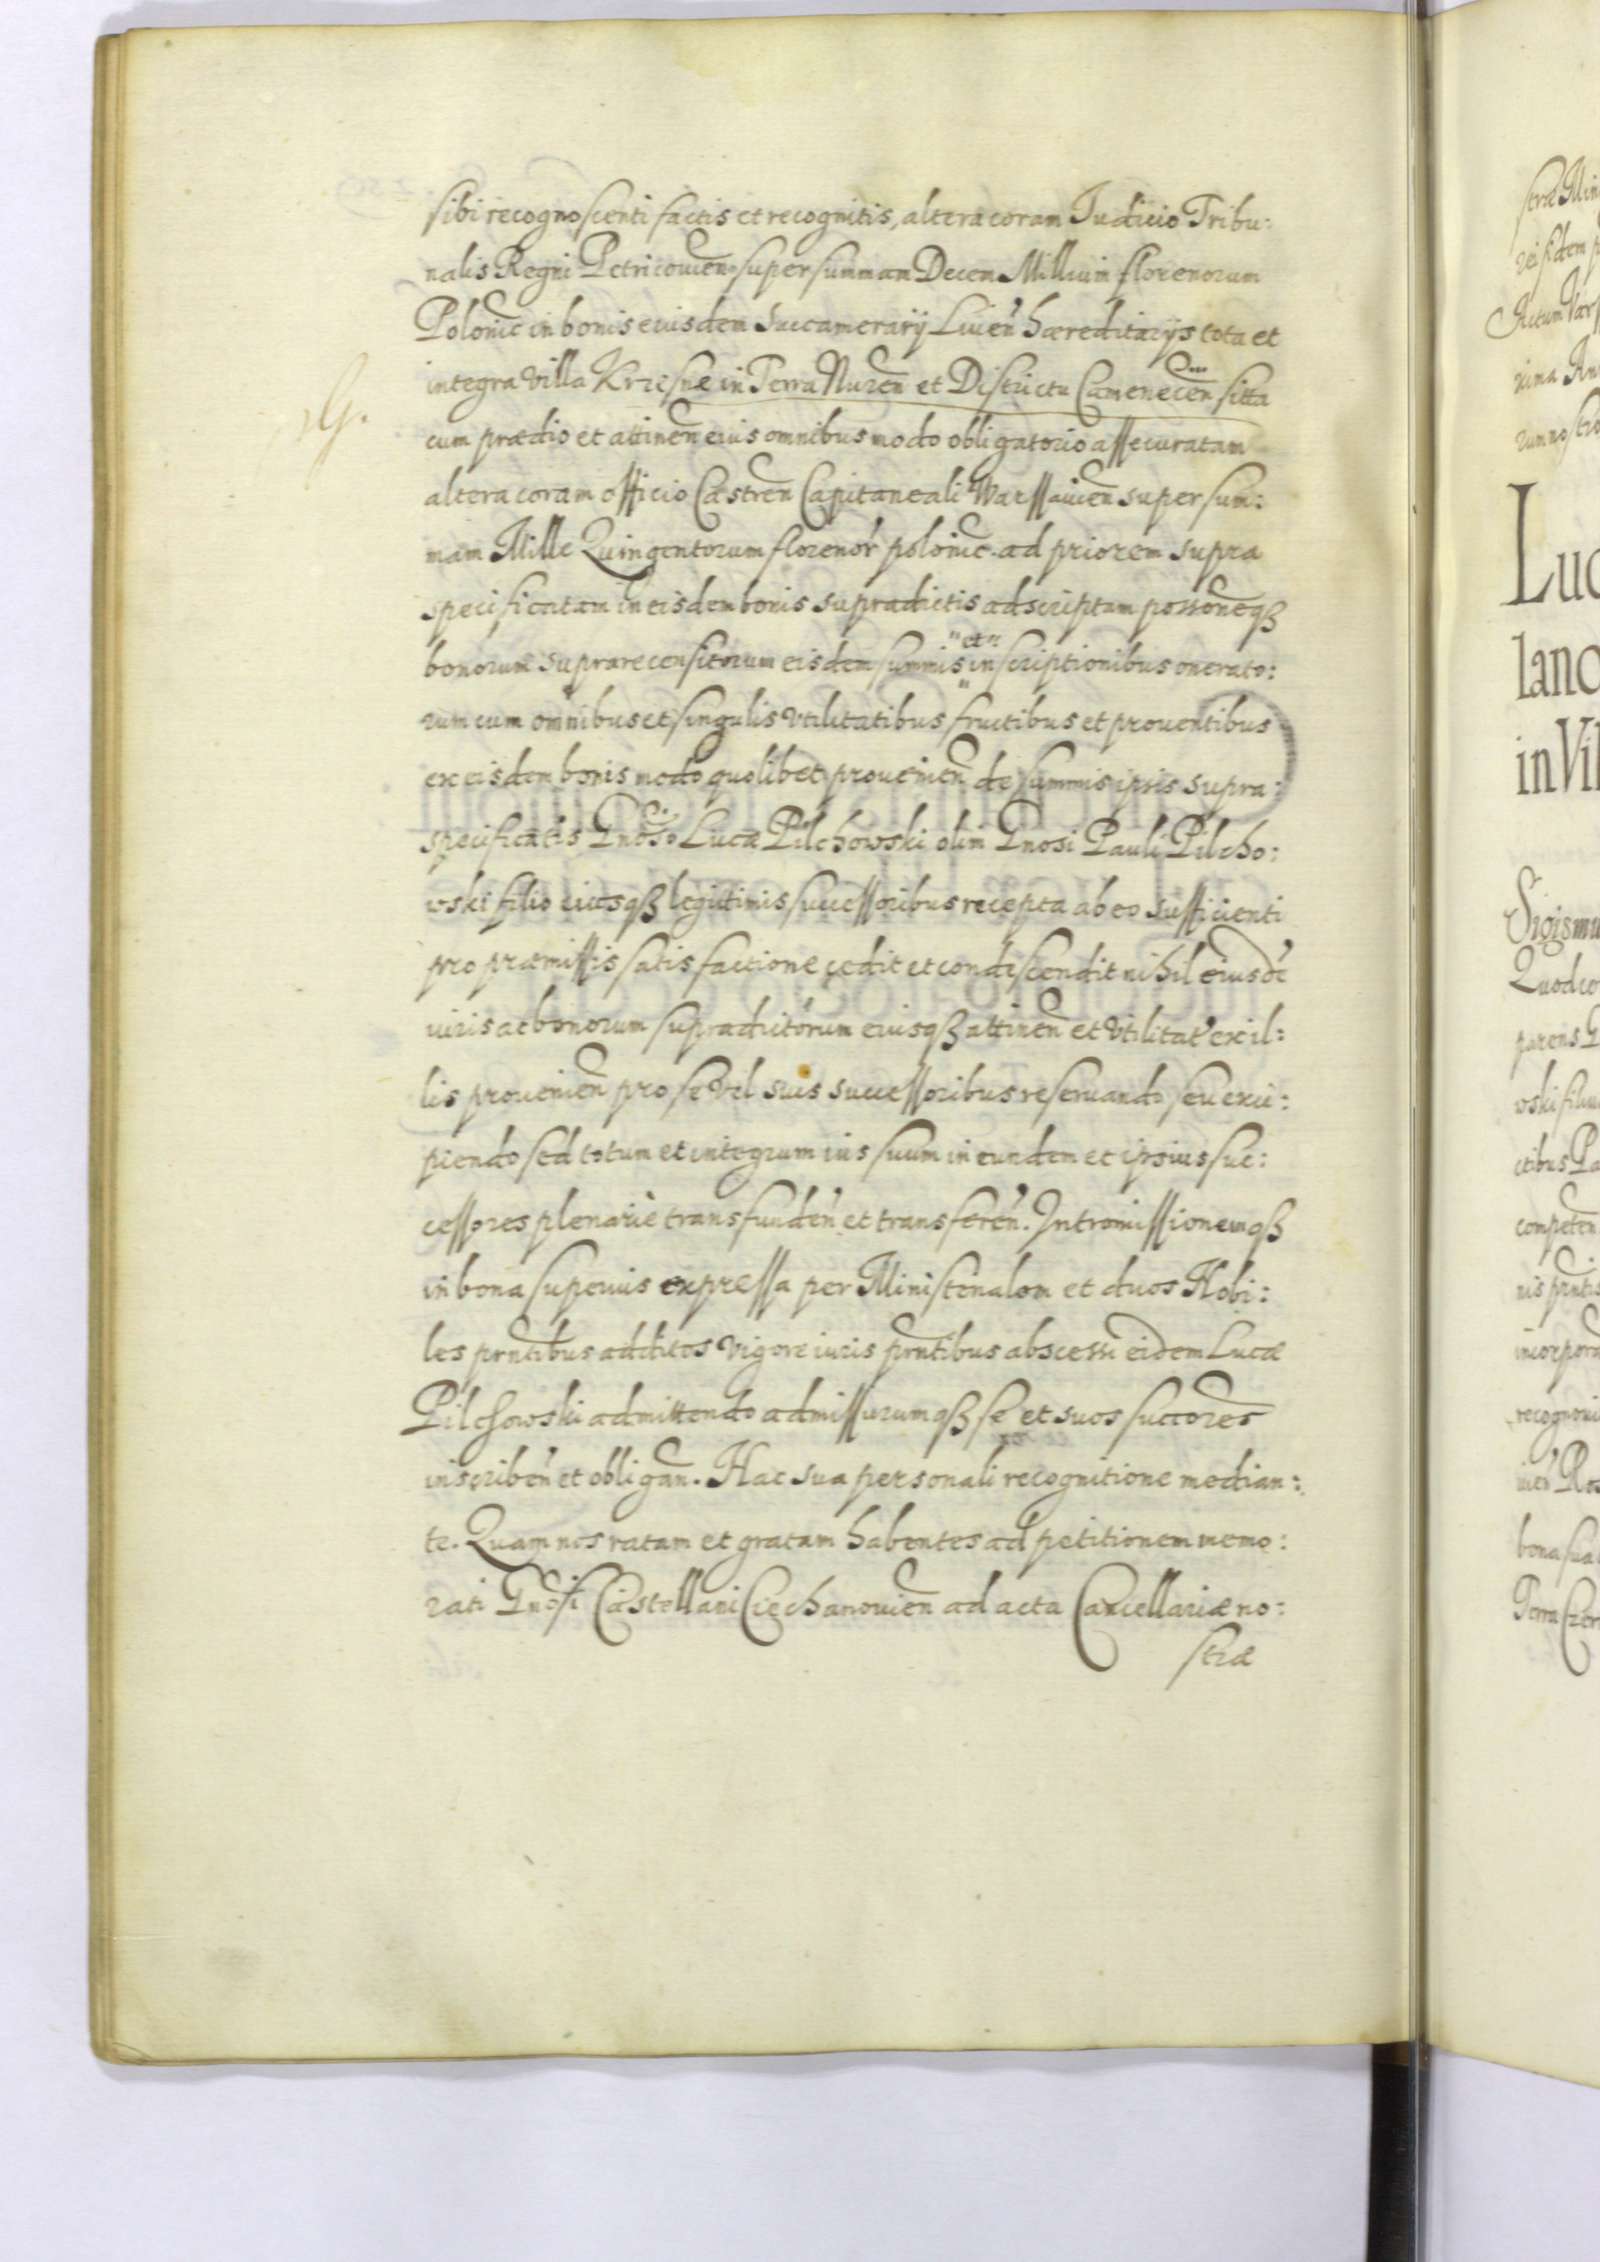 sibi recognoscenti factis et recognitis, altera coram Iudicio Tribu:
nalis Regni Petricouien super summam Decem Millium florenorum
Polonic in bonis eiusdem Succamerarij Liuen hæreditarijs tota et
integra villa Krzesne in Terra Nuren et Districtu Camenecen sitta
cum prædio et attinen eius omnibus modo obligatorio assecuratam
altera coram officio Castren Capitaneali Warssauien super sum:
mam Mille Quingentorum florenor polonic. ad priorem supra
specificatam in eisdem bonis supradictis adscriptam possioneqȝ
bonorum suprarecensitorum eisdem summis et inscriptionibus onerato:
rum cum omnibus et singulis vtilitatibus fructibus et prouentibus
ex eisdem bonis modo quolibet prouenien de summis ipsis supra:
specificatis Gnoso Lucæ Pilchowski olim Gnosi Pauli Pilcho:
wski filio eiusqȝ legittimis successoribus recepta ab eo sufficienti
pro præmissis satisfactione cedit et condescendit nihil eiusde
iuris ac bonorum supradictorum eiusqȝ attinen et vtilitat ex il:
lis prouenien pro se vel suis successoribus reseruando seu exci:
piendo sed totum et integrum ius suum in eundem et ipsius suc:
cessores plenariè transfunden et transferen. Intromissionemqȝ
in bona superius expressa per Ministerialem et duos Nobi:
les prntibus additos vigore iuris prntibus abscessi eidem Lucæ
Pilchowski admittendo admissurumqȝ se et suos succores
inscriben et obligan. Hac sua personali recognitione median:
te. Quam nos ratam et gratam habentes ad petitionem memo:
rati Gnosi Castellani Ciechanouien ad acta Cancellariæ no:
stræ
Luc
lano
in Vil
Sigismu
Quod co
parens G
wski filiu
ctibus Pa
competen
recognoui
bona sua
Terra Czer